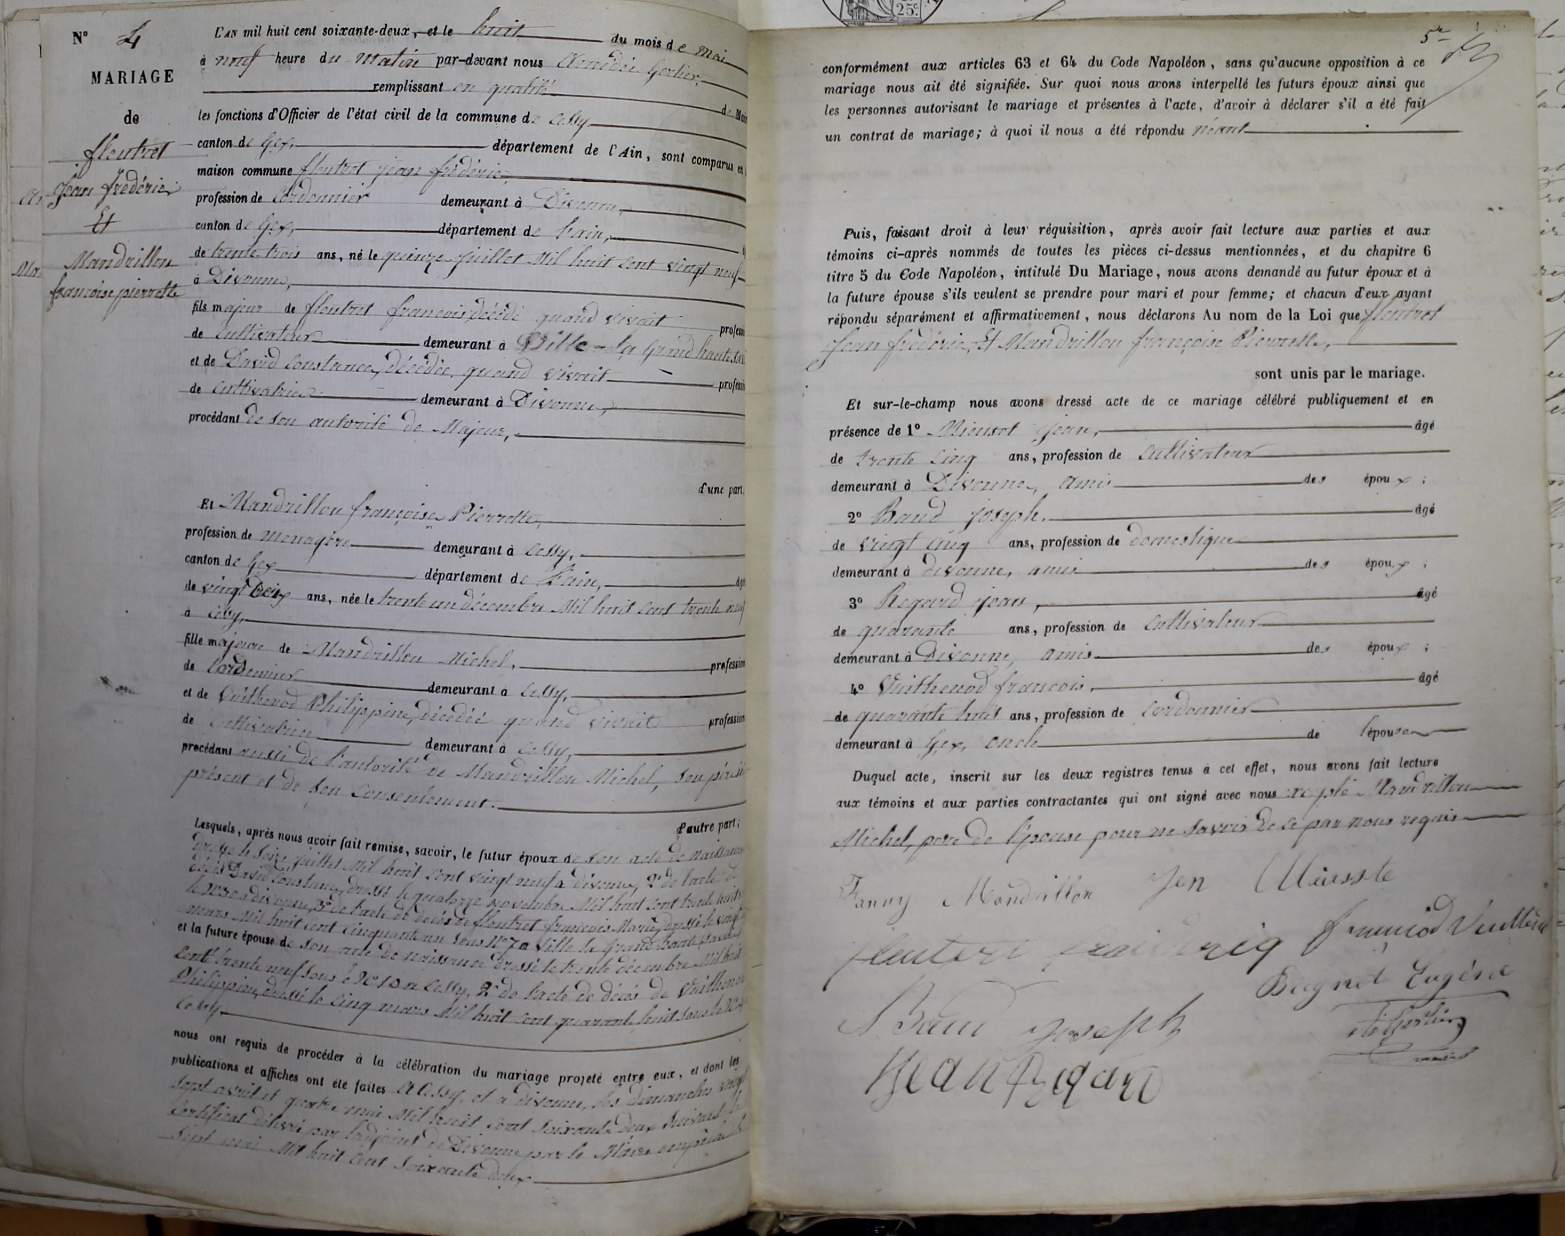 N° 4
MARIAGE
de
fleutret
Jean frédéric
Et
Mandrillon
françoise pierrette
L'AN mil huit cent soixante-deux, et le huit du mois de mai
à neuf heure du matin par-devant nous
remplissant en qualité de
les fonctions d'Officier de l'état civil de la commune de Cessy
canton de Gex, département de l'Ain, sont comparus en
maison commune fleutret jean frédéric
profession de Cordonnier demeurant à Divonne,
canton de Gex, département de l'ain,
de trente trois ans, né le quinze juillet Mil huit cent vingt neuf
à Divonne,
fils majeur de fleutret françois, décédé quand vivait profession
de Cultivateur demeurant à Ville-la Grand haute
et de David Constance, décédée, quand vivait profession
de cultivatrice demeurant à Divonne,
procédant de son autorité de Majeur,
d'une part.
Et Mandrillon françoise Pierrette,
profession de ménagère demeurant à Cessy,
canton de Gex département de l'ain,
de vingt Deux ans, née le trente un décembre Mil huit cent trente neuf
à Cessy,
fille majeure de Mandrillon Michel, profession
de Cordonnier demeurant à Cessy,
et de Vuithenod Philippine, décédée quand vivait profession
de Cultivatrice demeurant à Cessy,
procédant aussi de l'autorité de Mandrillon Michel, son père
présent et de son consentement.
d'autre part;
Lesquels, après nous avoir fait remise, savoir, le futur époux de son acte de naissance
dressé le seize juillet Mil huit cent vingt neuf à divonne, 2° de l'acte de
décès David Constance, dressé le quatorze novembre Mil huit cent trente huit
à divonne, 3° de l'acte de décès de fleutret françois Marie, dressé le vingt
mars Mil huit cent cinquante un sous N° 7 à Ville la Grand haute
et la future épouse de son acte de naissance dressé le trente décembre Mil huit
Cent trente neuf sous le N° 10 à Cessy, 2° de l'acte de décès de Vuithenod
Philippine, dressé le cinq mars Mil huit cent quarante huit sous le N°
Cessy
nous ont requis de procéder à la célébration du mariage projeté entre eux, et dont les
publications et affiches ont été faites à Cessy, et à divonne, les dimanches vingt
sept avril et quatre mai Mil huit cent soixante deux suivant
Certificat délivré par l'adjoint de Divonne par le Maire
sept mai Mil huit cent soixante deux
5
conformément aux articles 63 et 64 du Code Napoléon, sans qu'aucune opposition à ce
mariage nous ait été signifiée. Sur quoi nous avons interpellé les futurs époux ainsi que
les personnes autorisant le mariage et présentes à l'acte, d'avoir à déclarer s'il a été fait
un contrat de mariage; à quoi il nous a été répondu néant
Puis, faisant droit à leur réquisition, après avoir fait lecture aux parties et aux
témoins ci-après nommés de toutes les pièces ci-dessus mentionnées, et du chapitre 6
titre 5 du Code Napoléon, intitulé Du Mariage, nous avons demandé au futur époux et à
la future épouse s'ils veulent se prendre pour mari et pour femme; et chacun d'eux ayant
répondu séparément et affirmativement, nous déclarons Au nom de la Loi que fleutret
Jean frédéric, Et Mandrillon françoise Pierrette,
sont unis par le mariage.
Et sur-le-champ nous avons dressé acte de ce mariage célébré publiquement et en
présence de 1° Jean, âgé
de trente cinq ans, profession de cultivateur
demeurant à Divonne, amis des époux;
2° Baud joseph, âgé
de vingt cinq ans, profession de domestique
demeurant à divonne, amis des époux;
3° Regard jean, âgé
de quarante ans, profession de cultivateur
demeurant à Divonne, amis des époux;
4° Vuithenod françois, âgé
de quarante huit ans, profession de Cordonnier
demeurant à Gex, oncle de l'épouse
Duquel acte, inscrit sur les deux registres tenus à cet effet, nous avons fait lecture
aux témoins et aux parties contractantes qui ont signé avec nous excepté Mandrillon
Michel, père de l'épouse pour ne savoir de ce par nous requis
Fanny Mandrillon
françois
Eugène
Baud joseph
Jean Regard